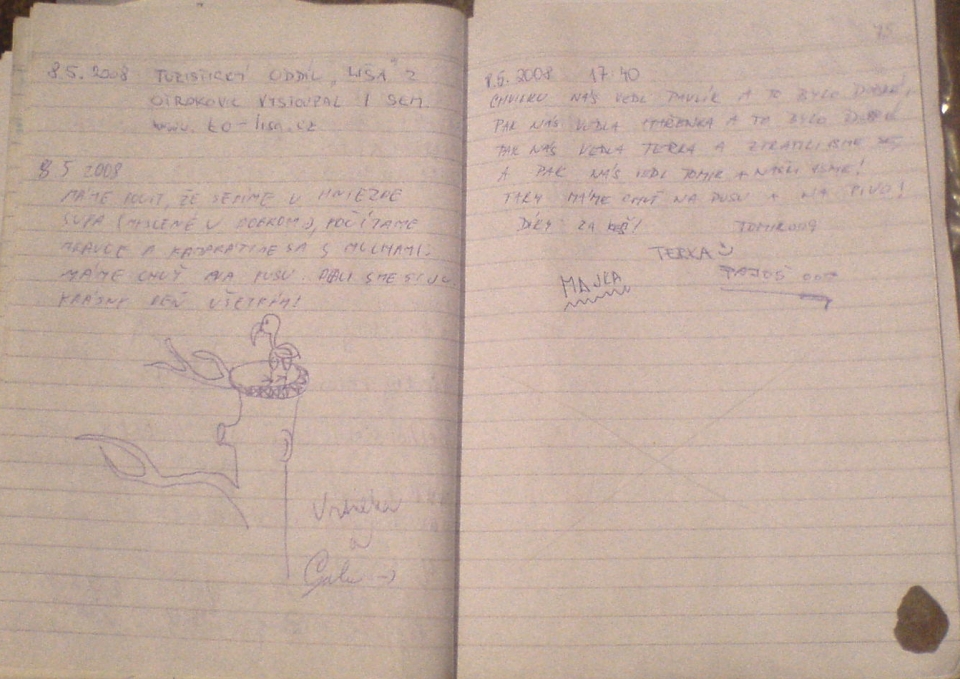 8.5. 2008 TURISTICKÝ ODDÍL "LIŠA" Z
OTROKOVIC VYSTOUPAL I SEM.
www.to-lisa.cz
8.5 2008
MÁME POCIT, ŽE SEDÍME V HNIEZDE
SUPA (MYSLENÉ V DOBROM), POČÍTAME
MRAVCE A KAMARÁTIME SA S MUCHAMI.
MÁME CHUŤ NA PUSU. DALI SME SI JU.
KRÁSNY DEŇ VŠETKÝM!
a
75
8.5. 2008 17:40
CHVILKU NÁS VEDL PAVLÍK A TO BYLO DOBRÉ,
PAK NÁS VEDLA MAŘENKA A TO BYLO DOBRÉ
PAK NÁS VEDLA TERKA A ZTRATILI JSME SE
A PAK NÁS VEDL TOMIK A NAŠLI JSME!
TAKY MÁME CHUŤ NA PUSU A NA PIVO!
DÍKY ZA
TERKA
MAJKA